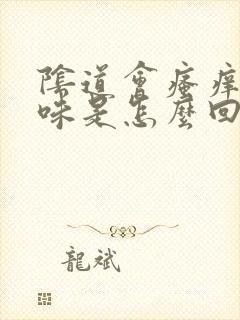 陰道會瘙癢
味是怎麼回
龍斌